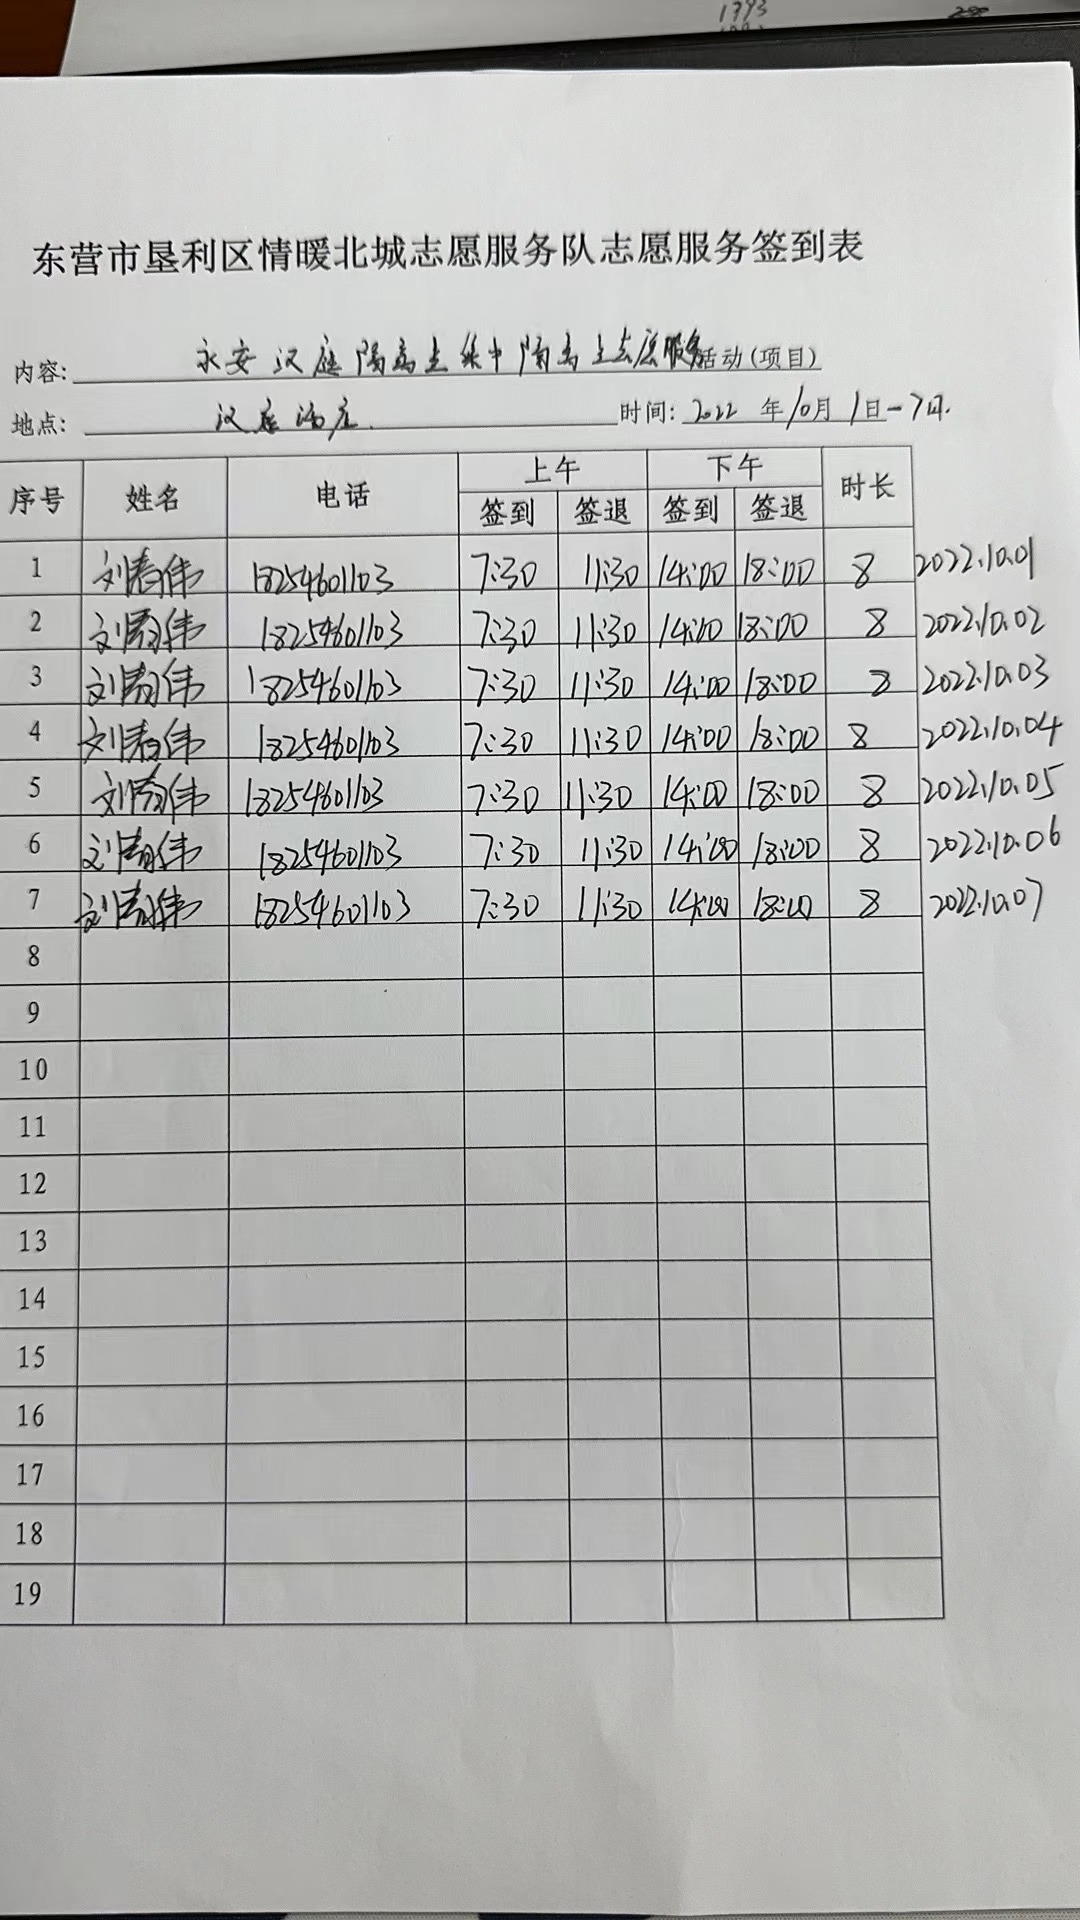 1793
东营市垦利区情暖北城志愿服务队志愿服务签到表
内容: 永安汉庭隔离点集中隔离点志愿服务活动(项目)
地点: 汉庭酒店. 时间: 2022 年 10月 1日-7日.
序号 姓名 电话 上午 下午 时长
签到 签退 签到 签退
1 刘春伟 18254601103 7:30 11:30 14:00 18:00 8 2022.10.01
2 刘春伟 18254601103 7:30 11:30 14:00 18:00 8 2022.10.02
3 刘春伟 18254601103 7:30 11:30 14:00 18:00 8 2022.10.03
4 刘春伟 18254601103 7:30 11:30 14:00 18:00 8 2022.10.04
5 刘春伟 18254601103 7:30 11:30 14:00 18:00 8 2022.10.05
6 刘春伟 18254601103 7:30 11:30 14:00 18:00 8 2022.10.06
7 刘春伟 18254601103 7:30 11:30 14:00 18:00 8 2022.10.07
8
9
10
11
12
13
14
15
16
17
18
19